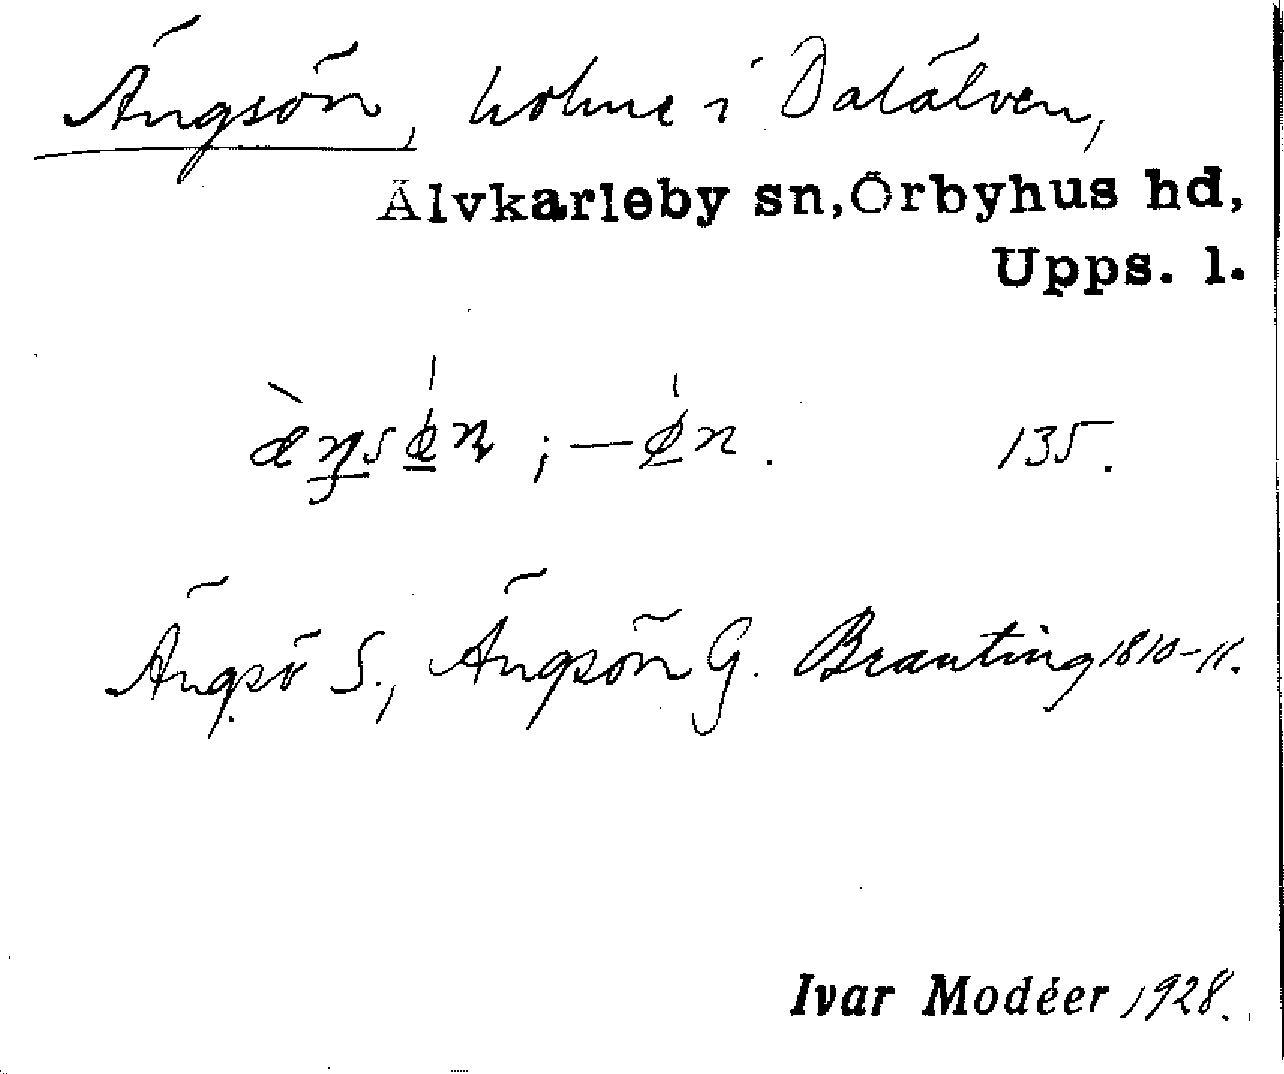 Ängsön, holme i Dalälven,
Älvkarleby sn, Örbyhus hd,
Upps. l.
135.
Ängsö S., Ängsön G. Branting 1810-11.
Ivar Modéer 1928.